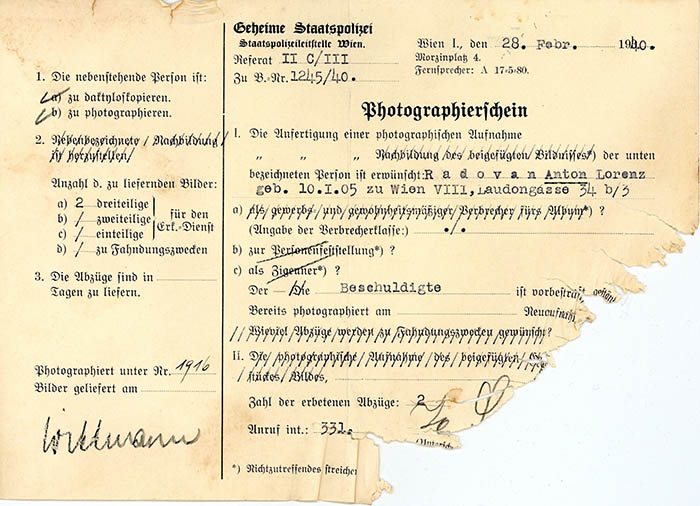 Geheime Staatspolizei
Staatspolizeileitstelle Wien.
Referat II C/III
Zu B.-Nr. 1245/40.
Wien I., den 28. Febr. 1940.
Morzinplatz 4.
Fernsprecher: A 17-5-80.
1. Die nebenstehende Person ist:
a) zu daktyloskopieren.
b) zu photographieren.
2. Nebenbezeichnete / Nachbildung
ist herzustellen
Anzahl d. zu liefernden Bilder:
a) 2 dreiteilige
b) / zweiteilige
c) / einteilige
für den
Erk.-Dienst
d) / zu Fahndungszwecken
3. Die Abzüge sind in
Tagen zu liefern.
Photographiert unter Nr. 1916
Bilder geliefert am
Photographierschein
I. Die Anfertigung einer photographischen Aufnahme
„ „ „ Nachbildung des beigefügten Bildnisses*) der unten
bezeichneten Person ist erwünscht: Radovan Anton Lorenz
geb. 10.I.05 zu Wien VIII, Laudongasse 34 b/3
a) als gewerbs- und gewohnheitsmäßiger Verbrecher fürs Album*) ?
(Angabe der Verbrecherklasse:) ./.
b) zur Personenfeststellung*) ?
c) als Zigeuner*) ?
Der - Die Beschuldigte ist vorbestraft,
Bereits photographiert am Neuaufnah
Wieviel Abzüge werden zu Fahndungszwecken gewünscht?
II. Die photographische Aufnahme des beigefügten
stückes / Bildes,
Zahl der erbetenen Abzüge: 2
Anruf int.: 331.
*) Nichtzutreffendes streichen